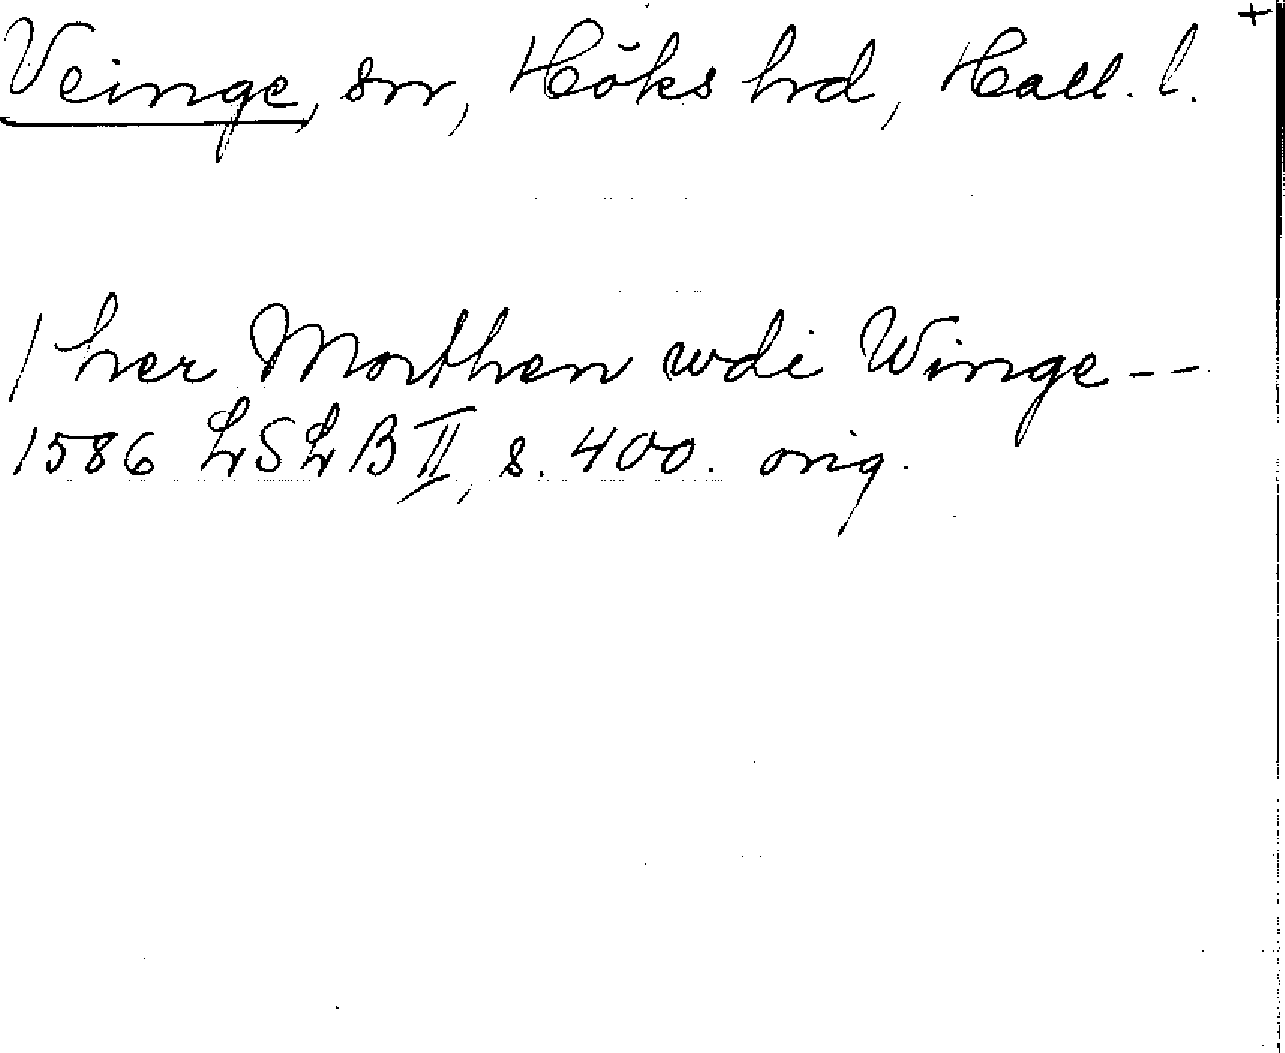 +
Veinge, sn, Höks hrd, Hall. l.
/ her Morthen wdi Winge --
1586 LSLB II, s. 400. orig.